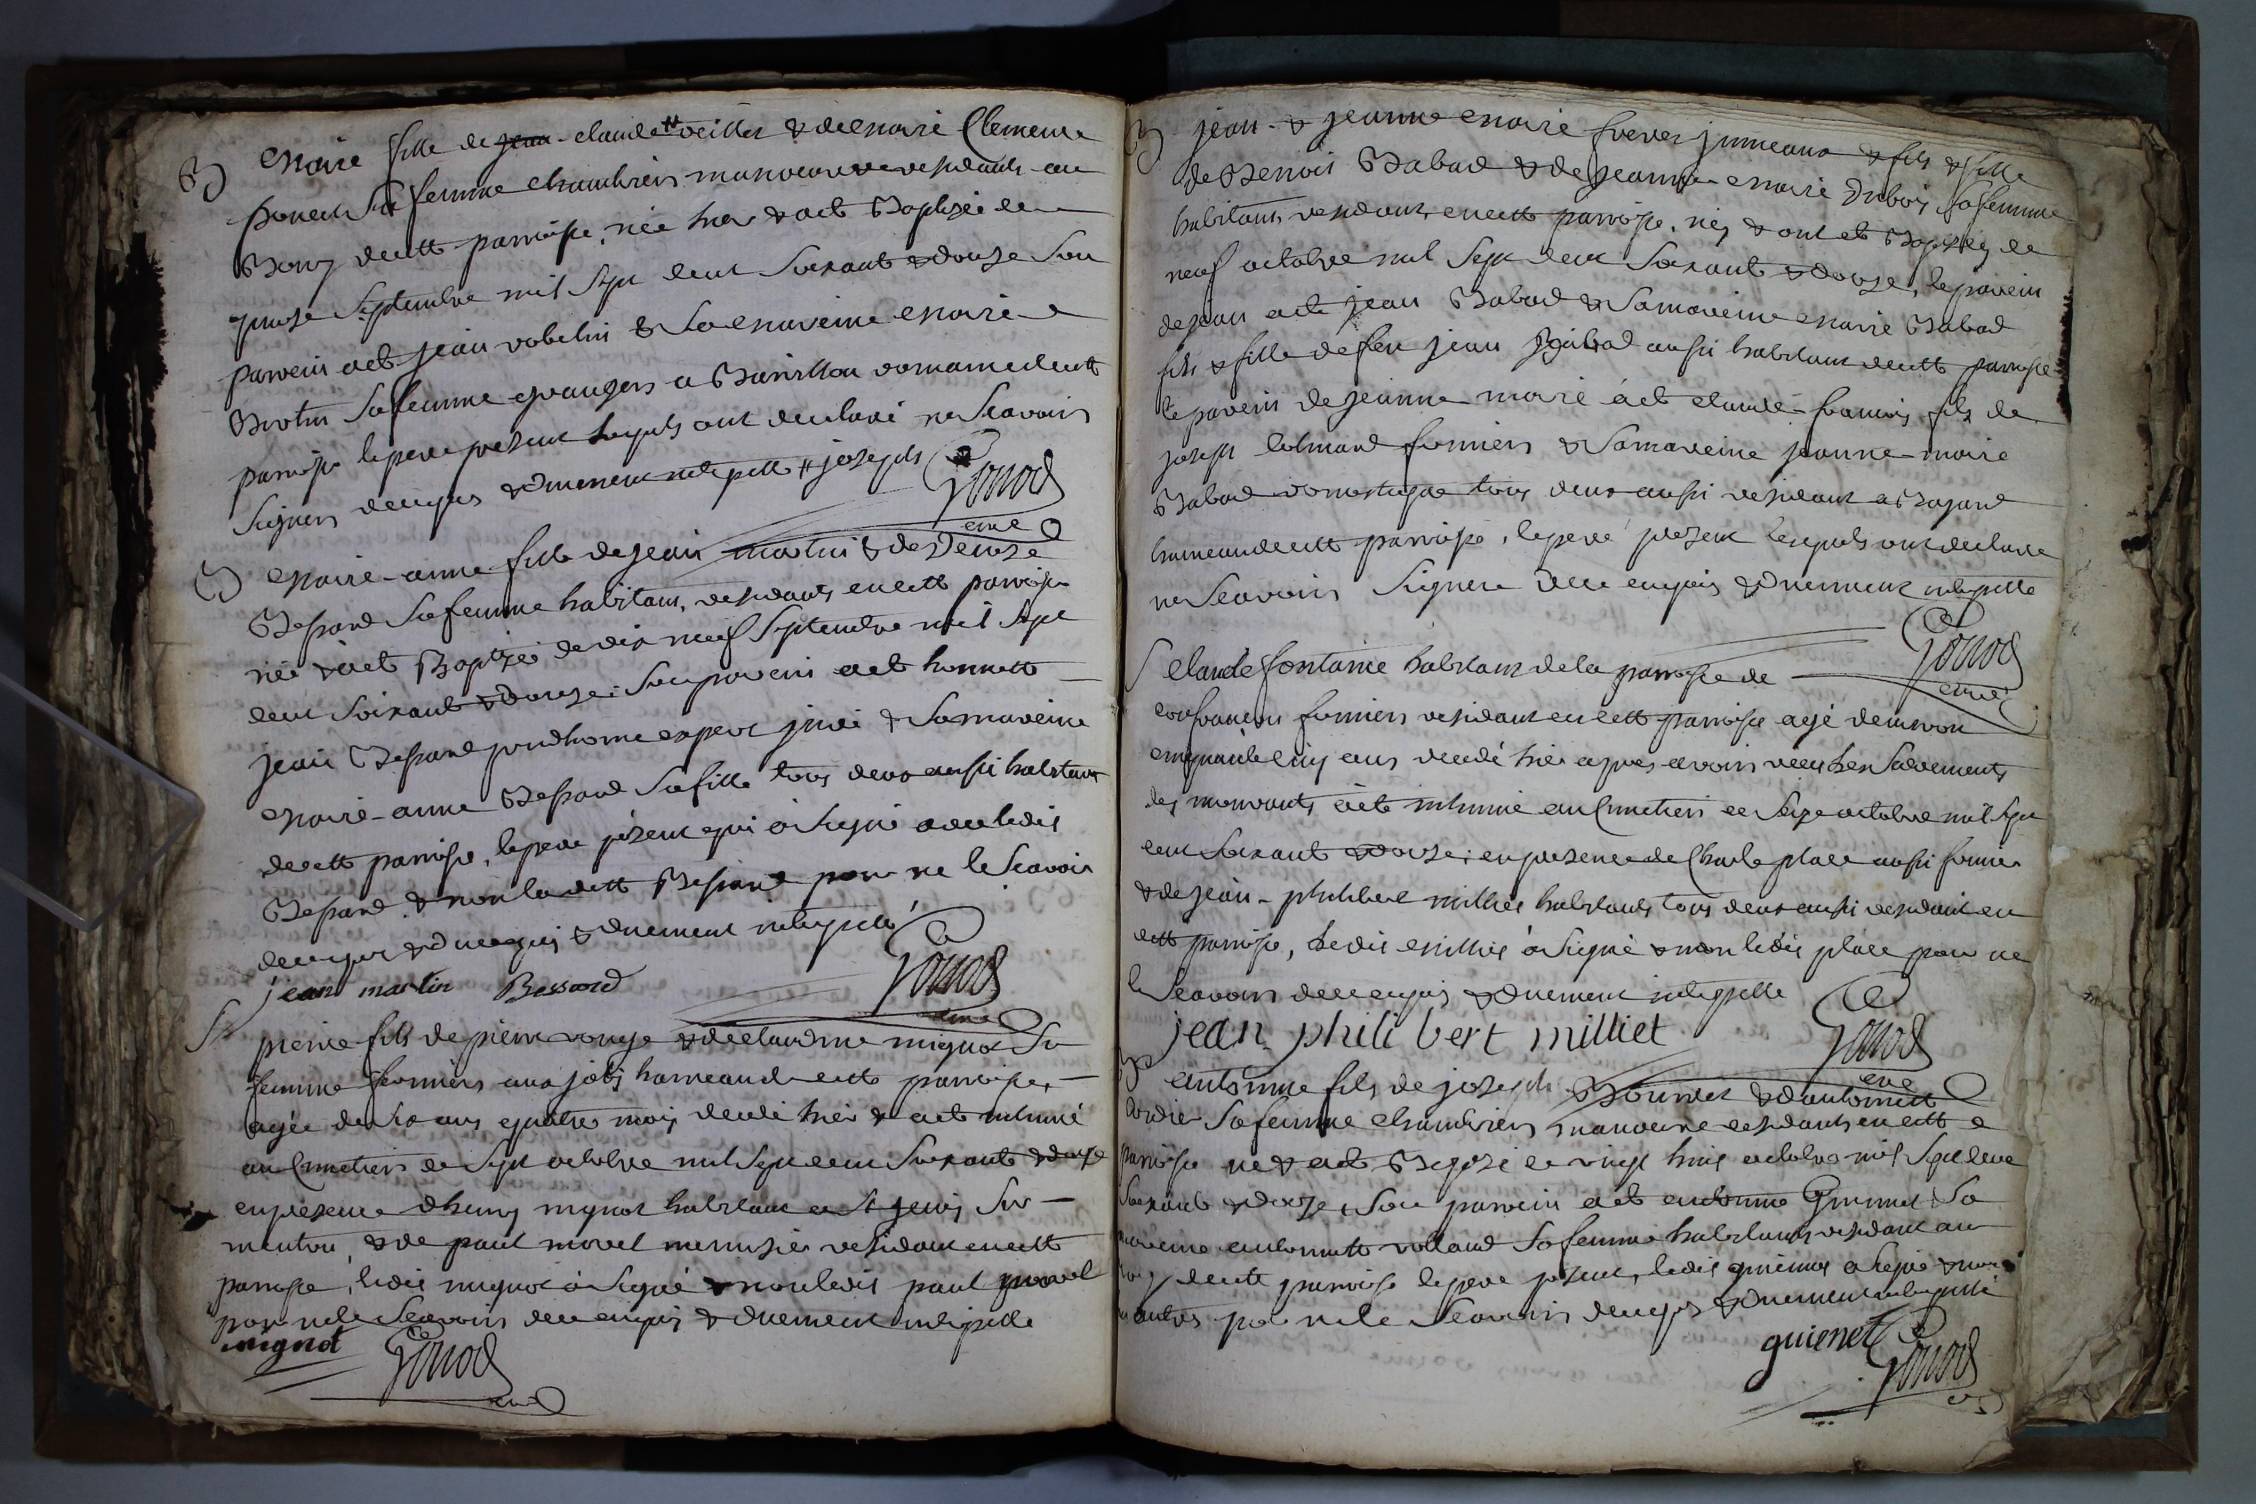 B Marie fille de jean claude # veillet & de Marie Clemence
sa femme chambriers manoeuvre residants au
Bourg de cette parroisse, née hier & a eté Baptizée le
quinze septembre mil sept cent soixante & douze son
parrein a eté jean robelin & sa mareine Marie
Brotin sa femme grangers a Barillon domaine de cette
parroisse le pere present lesquels ont declaré ne scavoir
signer de ce enquis & duement interpellé # joseph
Gonod
curé
B Marie-anne fille de jean martin & de Denize
Bessard sa femme habitans, residants en cette parroisse
née & a eté Baptizée le dix neuf septembre mil sept
cent soixante & douze, son parrein a eté honnette
jean Bessard prudhome expert juré & sa mareine
Marie-anne Bessard sa fille tous deux aussi habitans
de cette parroisse, le pere présent qui a signé avec ledit
Bessard & non la dette Bessard pour ne le scavoir
de ce enquis & duement interpellé
jean martin Bessard
Gonod
curé
S pierre fils de pierre rouge & de claudine mignot sa
femme fermiers aux jobs hameau de cette parroisse,
agée de six ans quatre mois decedé hier & a eté inhumé
au Cimetiere le sept octobre mil sept cent soixante & douze
en présence d'humy mignot habitant a St jenis sur
menton, & de paul morel menusier residant en cette
parroisse, ledit mignot a signé & non ledit paul morel
pour ne le scavoir de ce enquis & duement interpellé
mignot
Gonod
curé
B jean & jeanne Marie freres jumeaux & fils & fille
de Benoit Babad & de jeanne Marie Dubois sa femme
habitans residants en cette parroisse, nés & ont eté Baptizés le
neuf octobre mil sept cent soixante & douze, le parein
de jean a eté jean Babad & sa mareine Marie Babad
fils & fille de feu jean Babad aussi habitant de cette parroisse
le parein de jeanne marie a eté claude francois fils de
joseph fermier & sa mareine jeanne marie
Babad domestique tous deux aussi residant a Bayard
hameau de cette parroisse, le pere présent lesquels ont declaré
ne scavoir signer de ce enquis & duement interpellé
Gonod
curé
S claude fontaine habitant de la parroisse de
confrancon fermier residant en cette parroisse agé d'environ
cinquante cinq ans decedé hier apres avoir receu les sacrements
des mourants a eté inhumé au Cimetiere le seize octobre mil sept
cent soixante & douze, en presence de Charle place aussi fermier
& de jean-philibert milliet habitants tous deux aussi residant en
cette parroisse, ledit milliet a signé & non ledit place pour ne
le scavoir de ce enquis & duement interpellé
jean philibert milliet
Gonod
curé
B antoinne fils de joseph Bourdet & d'antoinette
cordier sa femme chambriers manoeuvre residants en cette
parroisse né & a eté Baptizé le vingt huit octobre mil sept cent
soixante & douze, son parrein a eté antoinne Guimet sa
mareine antoinette volland sa femme habitants residant au
bourg de cette parroisse le pere present, ledit guienet a signé & non
les autres pour ne le scavoir de ce enquis & duement interpellé
guienet
Gonod
curé